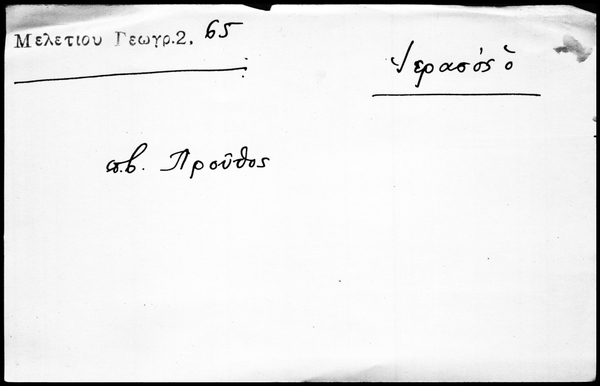 Μελετίου Γεωγρ.2, 65
Ἱερασός ὁ
π.β. Προῦθος